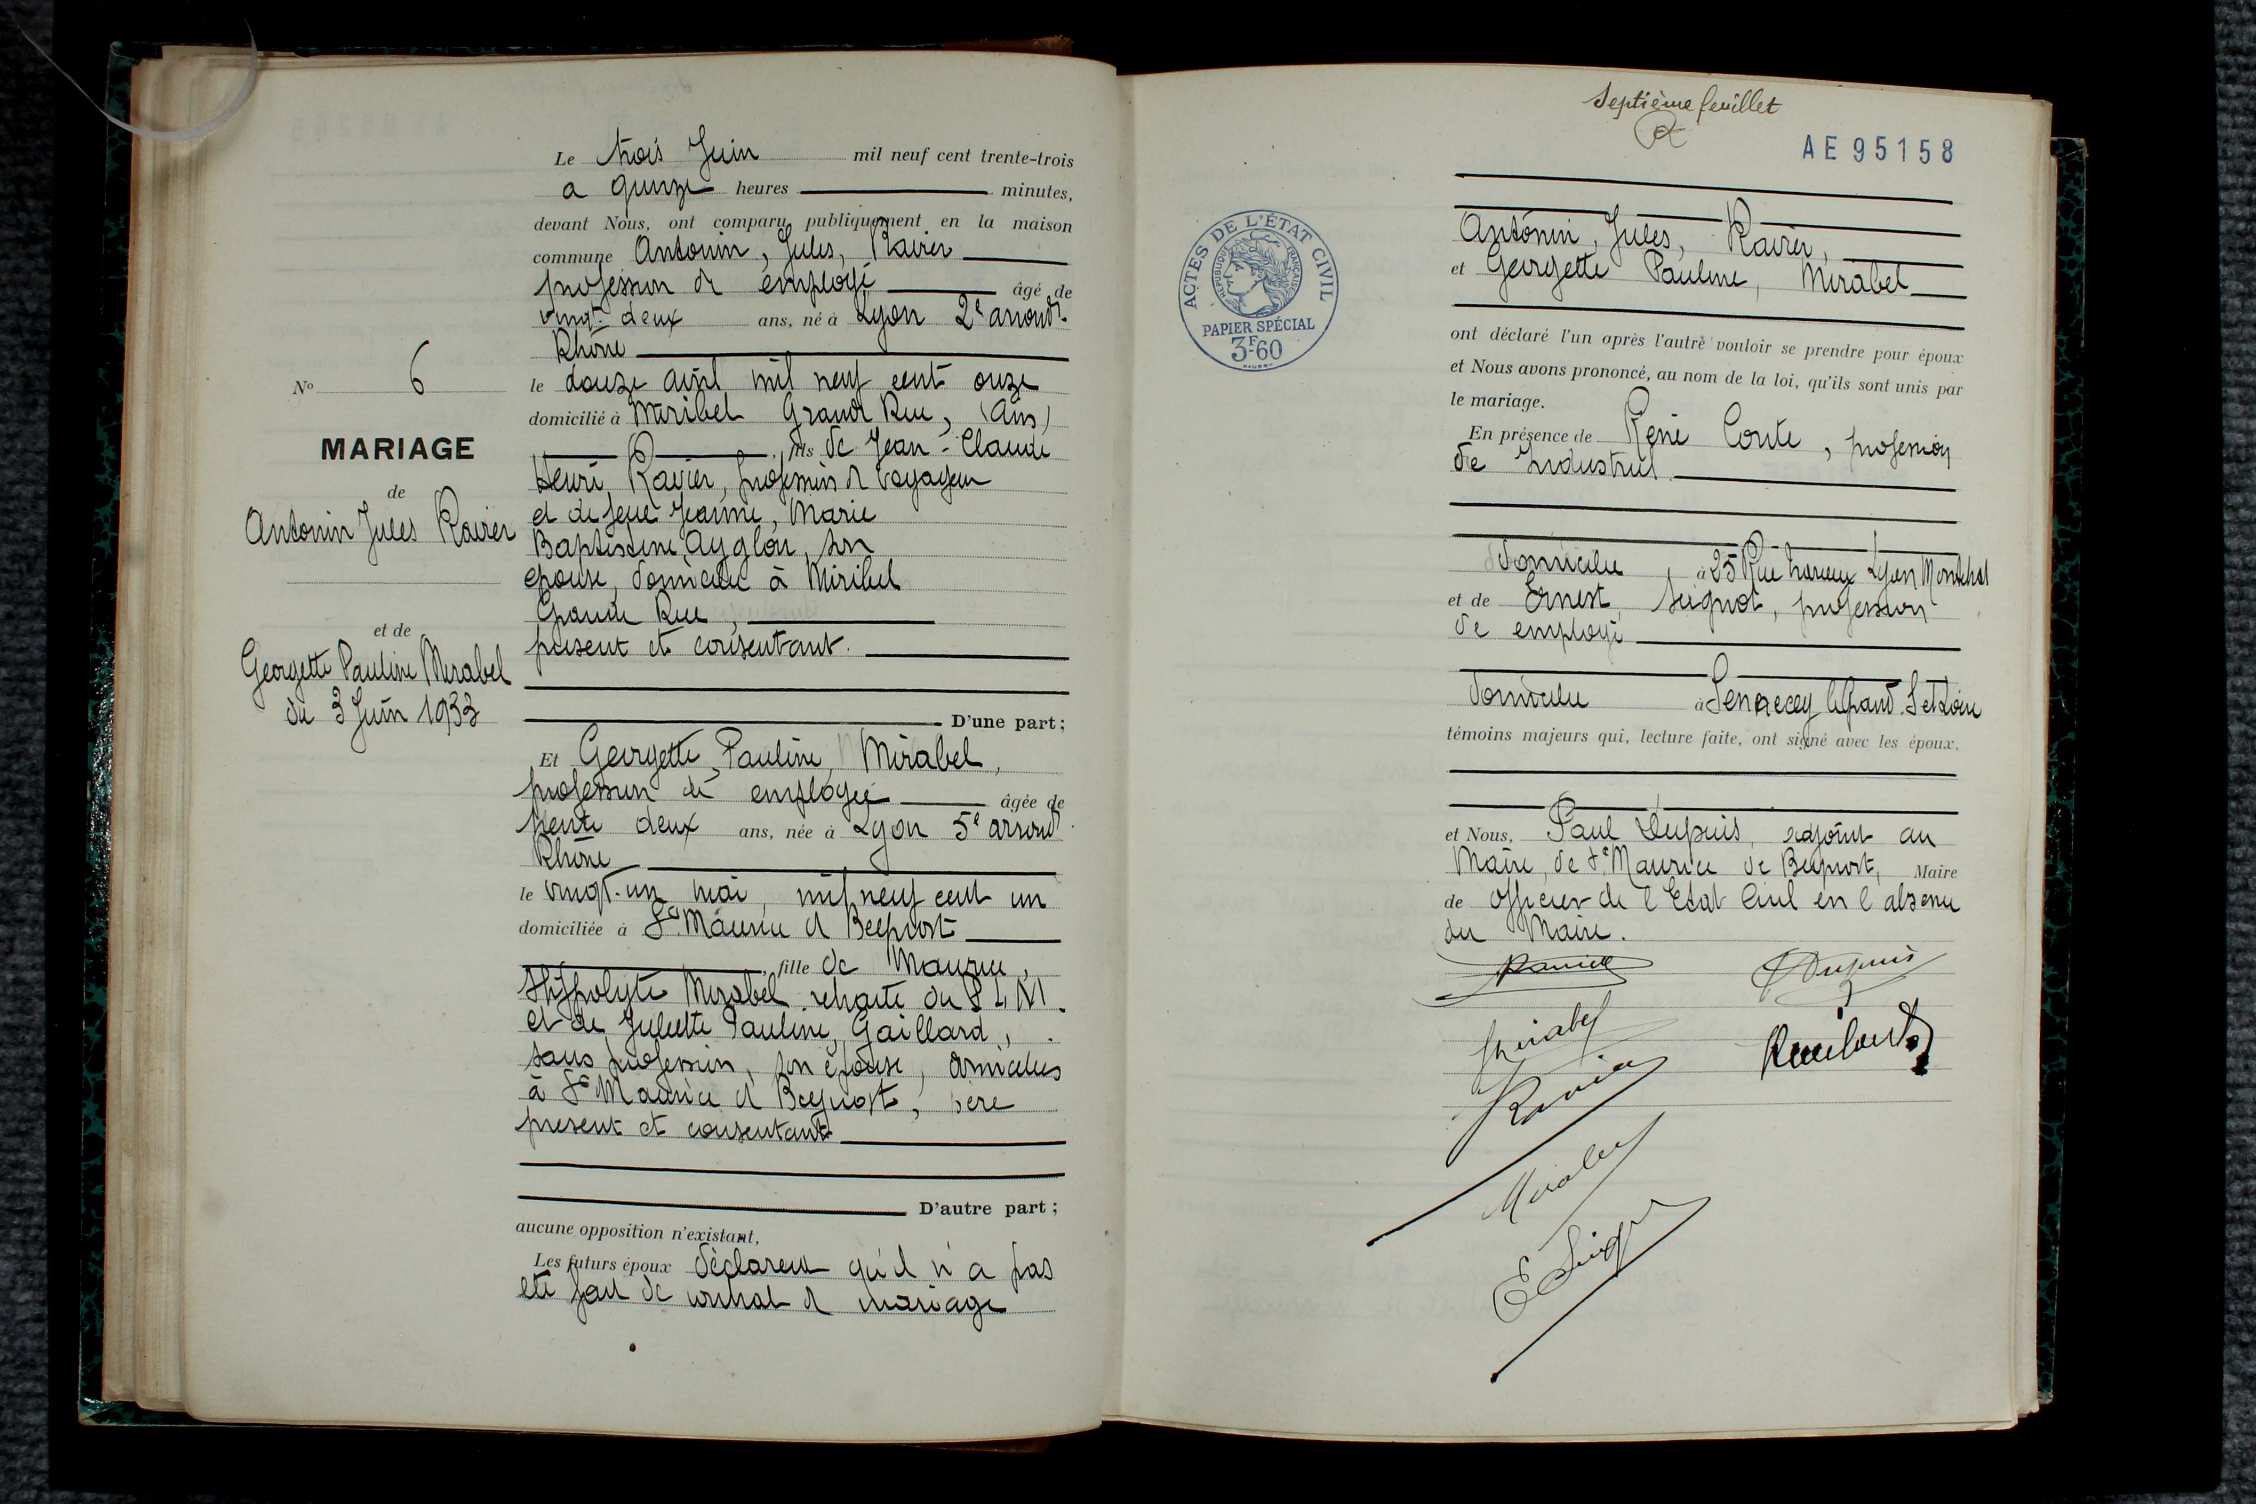 N° 6
MARIAGE
de
Antonin Jules Ravier
et de
Georgette Pauline Mirabel
du 3 Juin 1933
Le trois Juin mil neuf cent trente-trois
a quinze heures minutes,
devant Nous, ont comparu publiquement en la maison
commune Antonin, Jules, Ravier
profession d employé âgé de
vingt deux ans, né à Lyon 2e arrondt
Rhône
le douze avril mil neuf cent onze
domicilié à Miribel Grande Rue, (Ain)
, fils de Jean-Claude
Henri, Ravier, profession d voyageur
et de feue Jeanne, Marie
Baptistine, Ayglon, son
epouse, domicilié à Miribel
Grande Rue,
présent et consentant.
D'une part;
Et Georgette, Pauline, Mirabel,
profession de employée âgée de
trente deux ans, née à Lyon 5e arrondt
Rhône
le vingt-un mai, mil neuf cent un
domiciliée à St Maurice d Beynost
, fille de Maurice,
Hippolyte Mirabel retraité du P L M.
et de Juliette Pauline, Gaillard,
sans profession, son épouse, domiciliés
à St Maurice d Beynost, père
présent et consentant
D'autre part;
aucune opposition n'existant,
Les futurs époux déclarent qu'il n'a pas
été fait de contrat d mariage
Septième feuillet
AE 95158
ACTES DE L'ÉTAT CIVIL
RÉPUBLIQUE FRANÇAISE
PAPIER SPÉCIAL
3F-60
Antonin, Jules, Ravier,
et Georgette Pauline, Mirabel
ont déclaré l'un après l'autre vouloir se prendre pour époux
et Nous avons prononcé, au nom de la loi, qu'ils sont unis par
le mariage.
En présence de René Conte, profession
de Industriel
domicilié à 25 Rue Lyon Montchat
et de Ernest Seignot, profession
de employé
domicilié à Sennecey le Grand S et Loire
témoins majeurs qui, lecture faite, ont signé avec les époux.
et Nous, Paul Dupuis, adjoint au
Maire, de St Maurice de Beynost, Maire
de officier de l Etat Civil en l absence
du Maire.
Ravier
PDupuis
Mirabel
Ravier
Mirabel